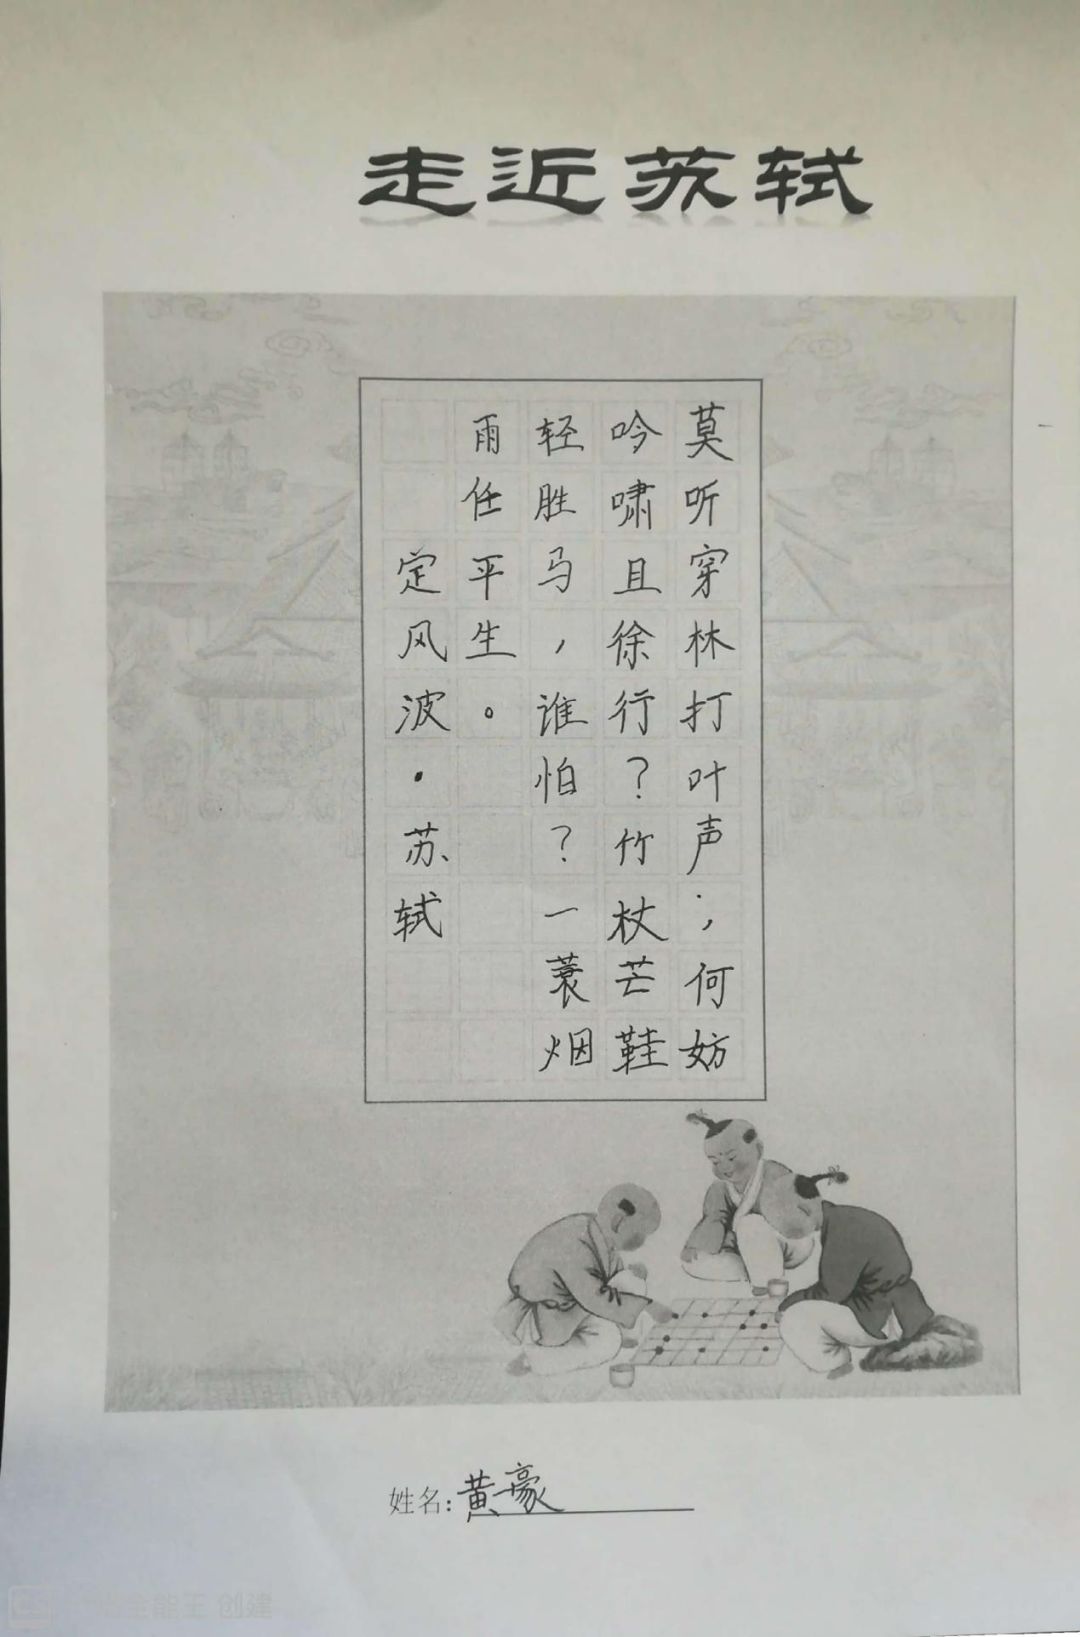 走近苏轼
莫听穿林打叶声;何妨
吟啸且徐行?竹杖芒鞋
轻胜马,谁怕?一蓑烟
雨任平生。
定风波·苏轼
姓名:黄豪
CS 全能王 创建